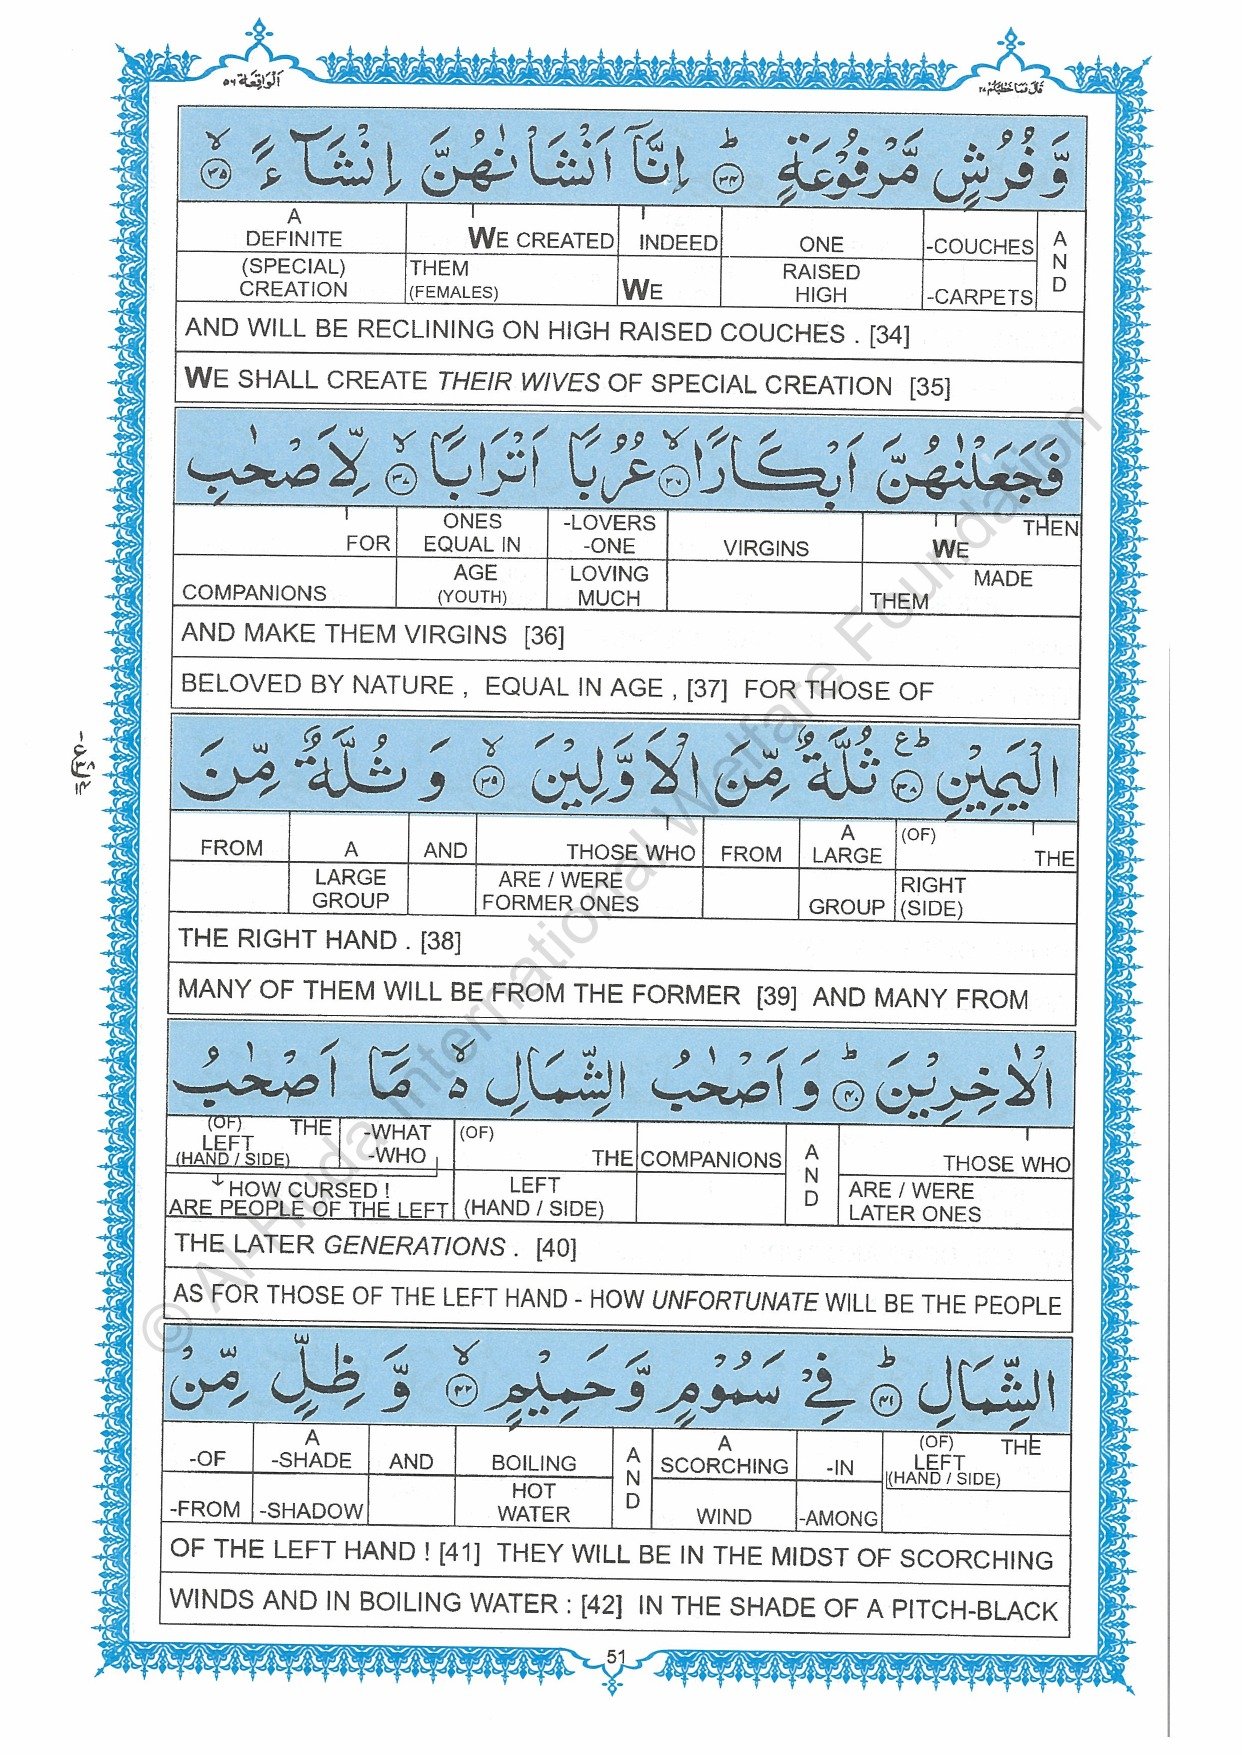 اَلْوَاقِعَة ٥٦
قَالَ فَمَا خَطْبُكُمْ ٢٧
وَّ فُرُشٍ مَّرْفُوْعَةٍ ؕ ﴿۳۴﴾ اِنَّاۤ اَنْشَاْنٰهُنَّ اِنْشَآءً ۙ ﴿۳۵﴾
A DEFINITE WE CREATED INDEED ONE -COUCHES AND
(SPECIAL) CREATION THEM (FEMALES) WE RAISED HIGH -CARPETS
AND WILL BE RECLINING ON HIGH RAISED COUCHES . [34]
WE SHALL CREATE THEIR WIVES OF SPECIAL CREATION [35]
فَجَعَلْنٰهُنَّ اَبْكَارًا ۙ ﴿۳۶﴾ عُرُبًا اَتْرَابًا ۙ ﴿۳۷﴾ لِّاَصْحٰبِ
FOR ONES EQUAL IN -LOVERS -ONE VIRGINS WE THEN
COMPANIONS AGE (YOUTH) LOVING MUCH THEM MADE
AND MAKE THEM VIRGINS [36]
BELOVED BY NATURE , EQUAL IN AGE , [37] FOR THOSE OF
الْيَمِيْنِ ؕ ع ﴿۳۸﴾ ثُلَّةٌ مِّنَ الْاَوَّلِيْنَ ۙ ﴿۳۹﴾ وَ ثُلَّةٌ مِّنَ
FROM A AND THOSE WHO FROM A LARGE (OF) THE
LARGE GROUP ARE / WERE FORMER ONES GROUP RIGHT (SIDE)
THE RIGHT HAND . [38]
MANY OF THEM WILL BE FROM THE FORMER [39] AND MANY FROM
الْاٰخِرِيْنَ ؕ ﴿۴۰﴾ وَ اَصْحٰبُ الشِّمَالِ ۙ۬ مَاۤ اَصْحٰبُ
(OF) LEFT (HAND / SIDE) THE -WHAT -WHO (OF) THE COMPANIONS AND THOSE WHO
HOW CURSED ! ARE PEOPLE OF THE LEFT LEFT (HAND / SIDE) ARE / WERE LATER ONES
THE LATER GENERATIONS . [40]
AS FOR THOSE OF THE LEFT HAND - HOW UNFORTUNATE WILL BE THE PEOPLE
الشِّمَالِ ؕ ﴿۴۱﴾ فِيْ سَمُوْمٍ وَّ حَمِيْمٍ ۙ ﴿۴۲﴾ وَّ ظِلٍّ مِّنْ
-OF A -SHADE AND BOILING AND A SCORCHING -IN (OF) LEFT (HAND / SIDE) THE
-FROM -SHADOW HOT WATER WIND -AMONG
OF THE LEFT HAND ! [41] THEY WILL BE IN THE MIDST OF SCORCHING
WINDS AND IN BOILING WATER : [42] IN THE SHADE OF A PITCH-BLACK
51
© Al-Huda International Welfare Foundation